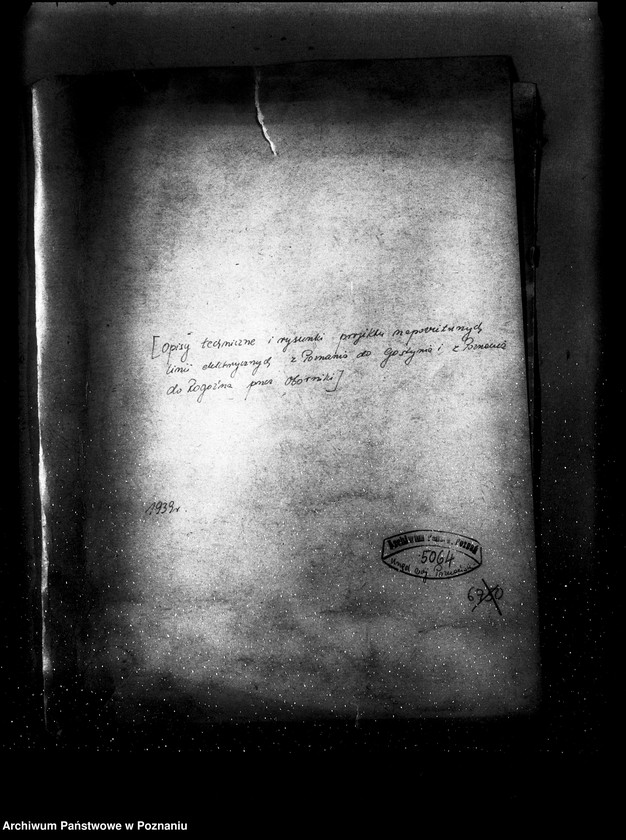 [Opisy techniczne i rysunki projektu napowietrznych
linii elektrycznych z Poznania do Gostynia i z Poznania
do Rogoźna przez Oborniki]
1939r.
Archiwum Państw. Poznań
5064
Urząd Woj. Poznański
6780
Archiwum Państwowe w Poznaniu